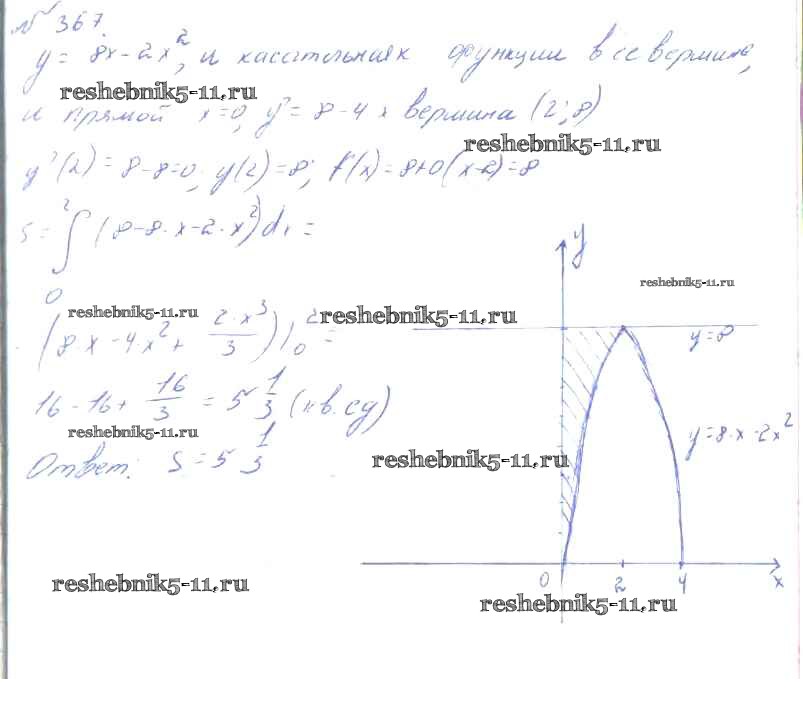 № 367.
y = 8x - 2x², и касательная к функции в ее вершине,
reshebnik5-11.ru
и прямой x=0, y' = 8 - 4x вершина (2; 8)
reshebnik5-11.ru
y'(2) = 8-8=0; y(2) = 8; f(x) = 8+0(x-2) = 8
S = ∫₀² (8-8·x-2·x²)dx =
reshebnik5-11.ru
reshebnik5-11.ru reshebnik5-11.ru
(8·x - 4·x² + 2·x³/3)|₀² =
16-16+ 16/3 = 5 1/3 (кв. ед)
reshebnik5-11.ru
Ответ: S = 5 1/3
reshebnik5-11.ru
reshebnik5-11.ru
reshebnik5-11.ru
y
y=8
y=8·x-2x²
0 2 4 x